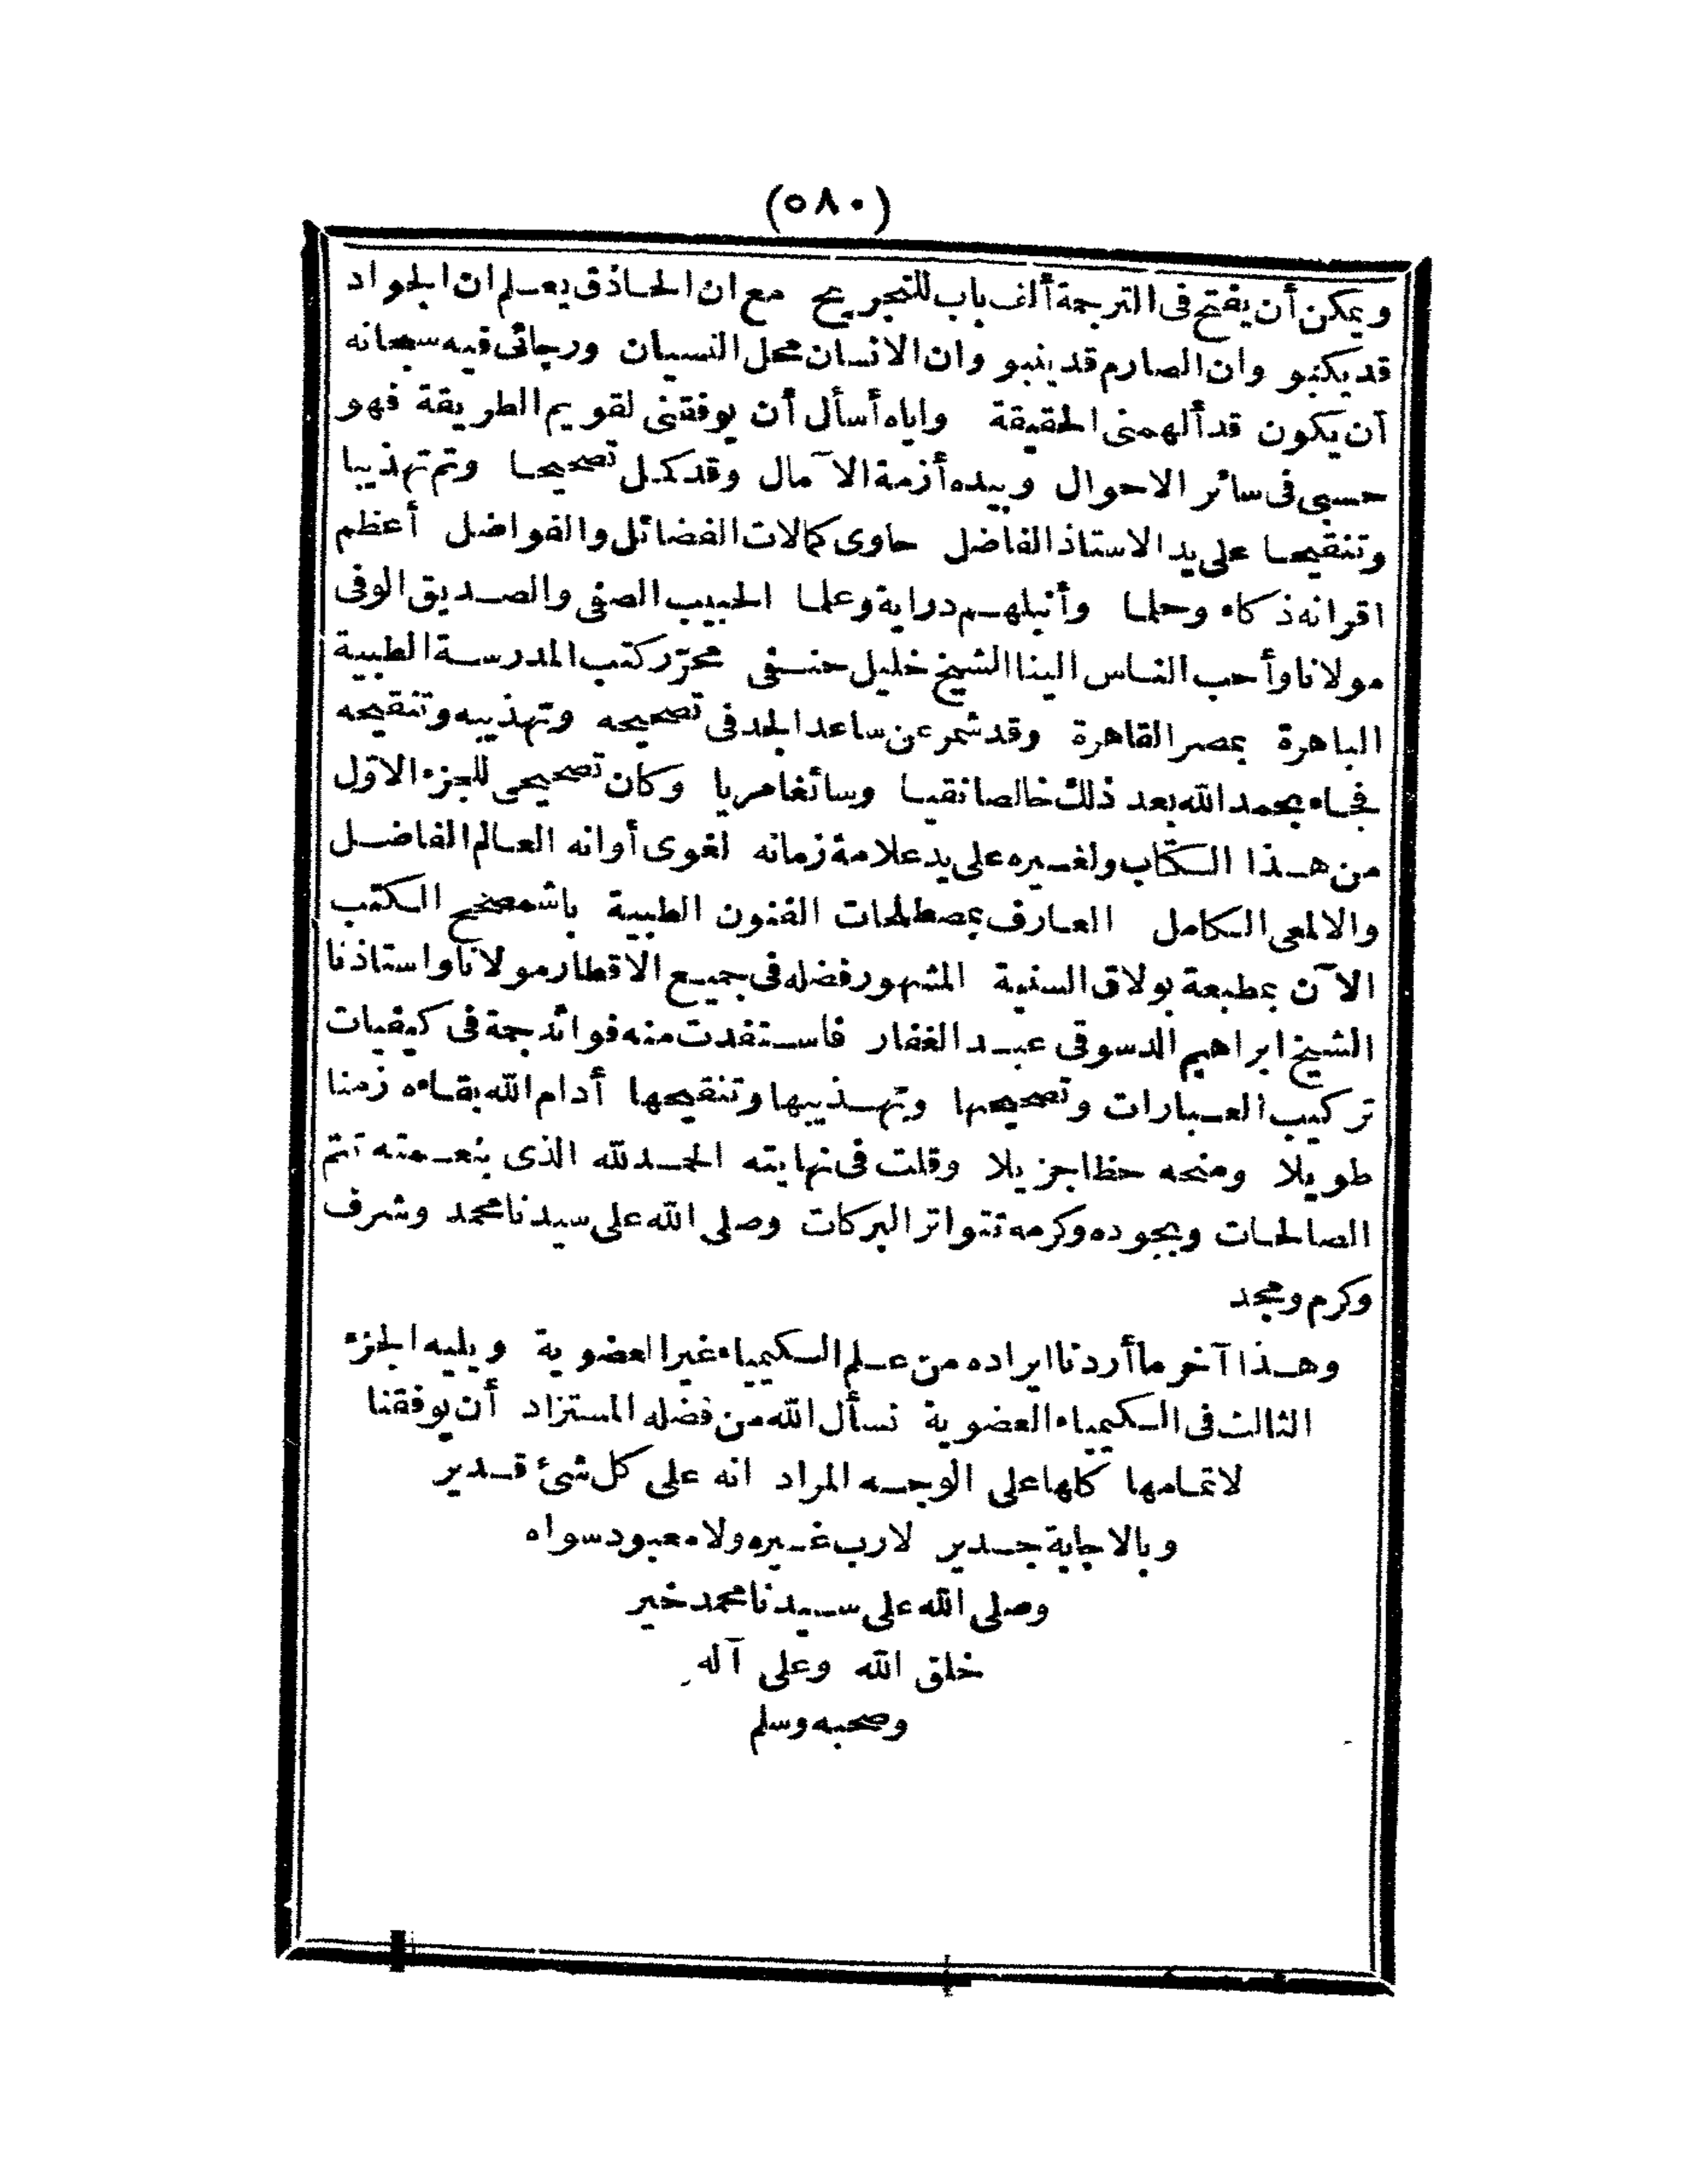 (٥٨٠)
ويمكن أن يفتح فى الترجمة ألف باب للتجريح مع ان الحاذق يعلم ان الجواد
قد يكبو وان الصارم قد ينبو وان الانسان محل النسيان ورجائى فيه سبحانه
أن يكون قد ألهمنى الحقيقة واياه أسأل أن يوفقنى لقويم الطريقة فهو
حسبى فى سائر الاحوال وبيده أزمة الآمال وقد كمل تصحيحا وتم تهذيبا
وتنقيحا على يد الاستاذ الفاضل حاوى كمالات الفضائل والفواضل أعظم
اقرانه ذكاء وحلما وأنبلهم دراية وعلما الحبيب الصفى والصديق الوفى
مولانا وأحب الناس الينا الشيخ خليل حنفى محرّر كتب المدرسة الطبية
الباهرة بمصر القاهرة وقد شمر عن ساعد الجد فى تصحيحه وتهذيبه وتنقيحه
فجاء بحمد الله بعد ذلك خالصا نقيا وسائغا مريا وكان تصحيحى للجزء الاوّل
من هذا الكتاب ولغيره على يد علامة زمانه لغوى أوانه العالم الفاضل
والالمعى الكامل العارف بمصطلحات الفنون الطبية باشمصحح الكتب
الآن بمطبعة بولاق السنية المشهور فضله فى جميع الاقطار مولانا واستاذنا
الشيخ ابراهيم الدسوقى عبد الغفار فاستفدت منه فوائد جمة فى كيفيات
تركيب العبارات وتصحيحها وتهذيبها وتنقيحها أدام الله بقاءه زمنا
طويلا ومنحه حظا جزيلا وقلت فى نهايته الحمد لله الذى بنعمته تتم
الصالحات وبجوده وكرمه تتواتر البركات وصلى الله على سيدنا محمد وشرف
وكرم ومجد
وهذا آخر ما أردنا ايراده من علم الكيمياء غير العضوية ويليه الجزء
الثالث فى الكيمياء العضوية نسأل الله من فضله المستزاد أن يوفقنا
لاتمامها كلها على الوجه المراد انه على كل شئ قدير
وبالاجابة جدير لا رب غيره ولا معبود سواه
وصلى الله على سيدنا محمد خير
خلق الله وعلى آله
وصحبه وسلم